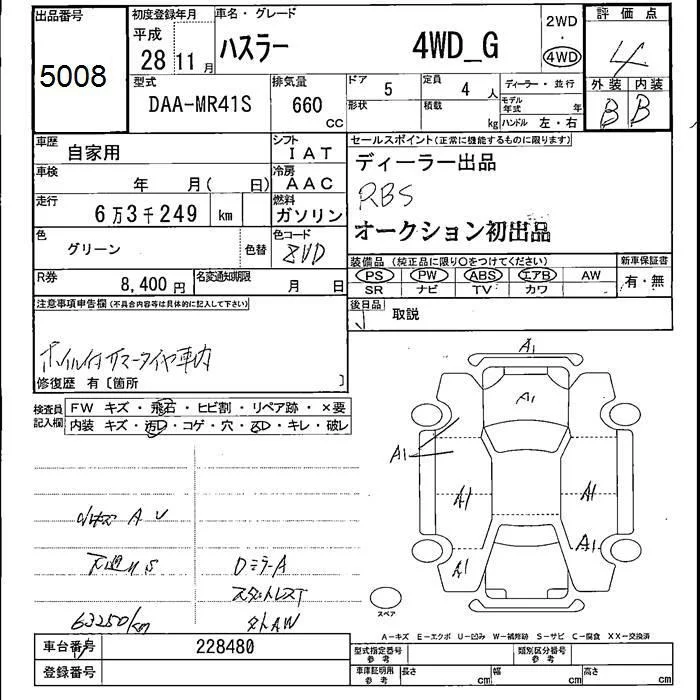 出品番号 初度登録年月 車名・グレード 評価点
5008 平成 28 11月 ハスラー 4WD_G 2WD・4WD 4
型式 排気量 ドア 5 定員 4人 ディーラー・並行 外装 内装
DAA-MR41S 660 CC 形状 積載 kg モデル年式 年 ハンドル 左・右 B B
車歴 自家用 シフト IAT セールスポイント(正常に機能するものに限ります)
車検 年 月( 日) 冷房 AAC ディーラー出品
走行 6万3千249 km 燃料 ガソリン RBS
色 グリーン 色替 色コード ZUD オークション初出品
R券 8,400円 名変通知期限 月 日 装備品(純正品に限り○をつけてください) 新車保証書
PS PW ABS エアB AW 有・無
SR ナビ TV カワ
注意事項申告欄(不具合内容等は具体的に記入して下さい) 後日品 取説
ホイル付サマータイヤ車内
修復歴 有〔箇所 〕
検査員記入欄 FW キズ・飛石・ヒビ割・リペア跡・×要
内装 キズ・汚れ・コゲ・穴・スレ・キレ・破レ
A1
A1
A1
A1 A1
A1 A1
小キズ A U
下廻りS ロミラーA
スタットレスT
63250km タトAW
スペア
A-キズ E-エクボ U-凹み W-補修跡 S-サビ C-腐食 XX-交換済
車台番号 228480 型式指定番号 参考 類別区分番号 参考
登録番号 車庫証明用 参考 長さ cm 幅 cm 高さ cm